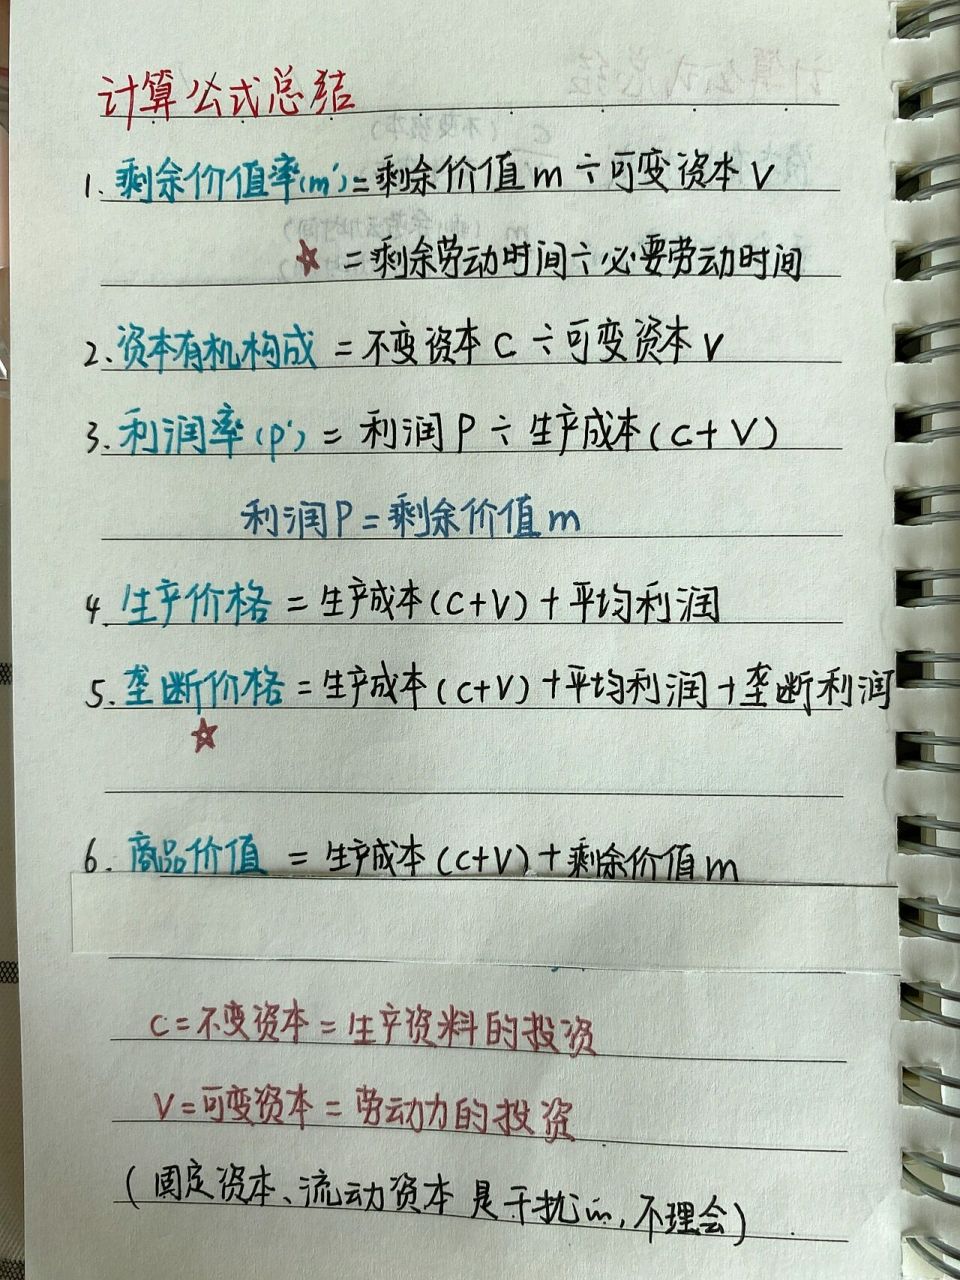 计算公式总结
1. 剩余价值率(m')=剩余价值m÷可变资本V
☆ =剩余劳动时间÷必要劳动时间
2. 资本有机构成 = 不变资本C÷可变资本V
3. 利润率(p') = 利润P÷生产成本(C+V)
利润P=剩余价值m
4. 生产价格 = 生产成本(C+V)+平均利润
5. 垄断价格 = 生产成本(C+V)+平均利润+垄断利润
☆
6. 商品价值 = 生产成本(C+V)+剩余价值m
C=不变资本=生产资料的投资
V=可变资本=劳动力的投资
(固定资本、流动资本 是干扰, 不理会)